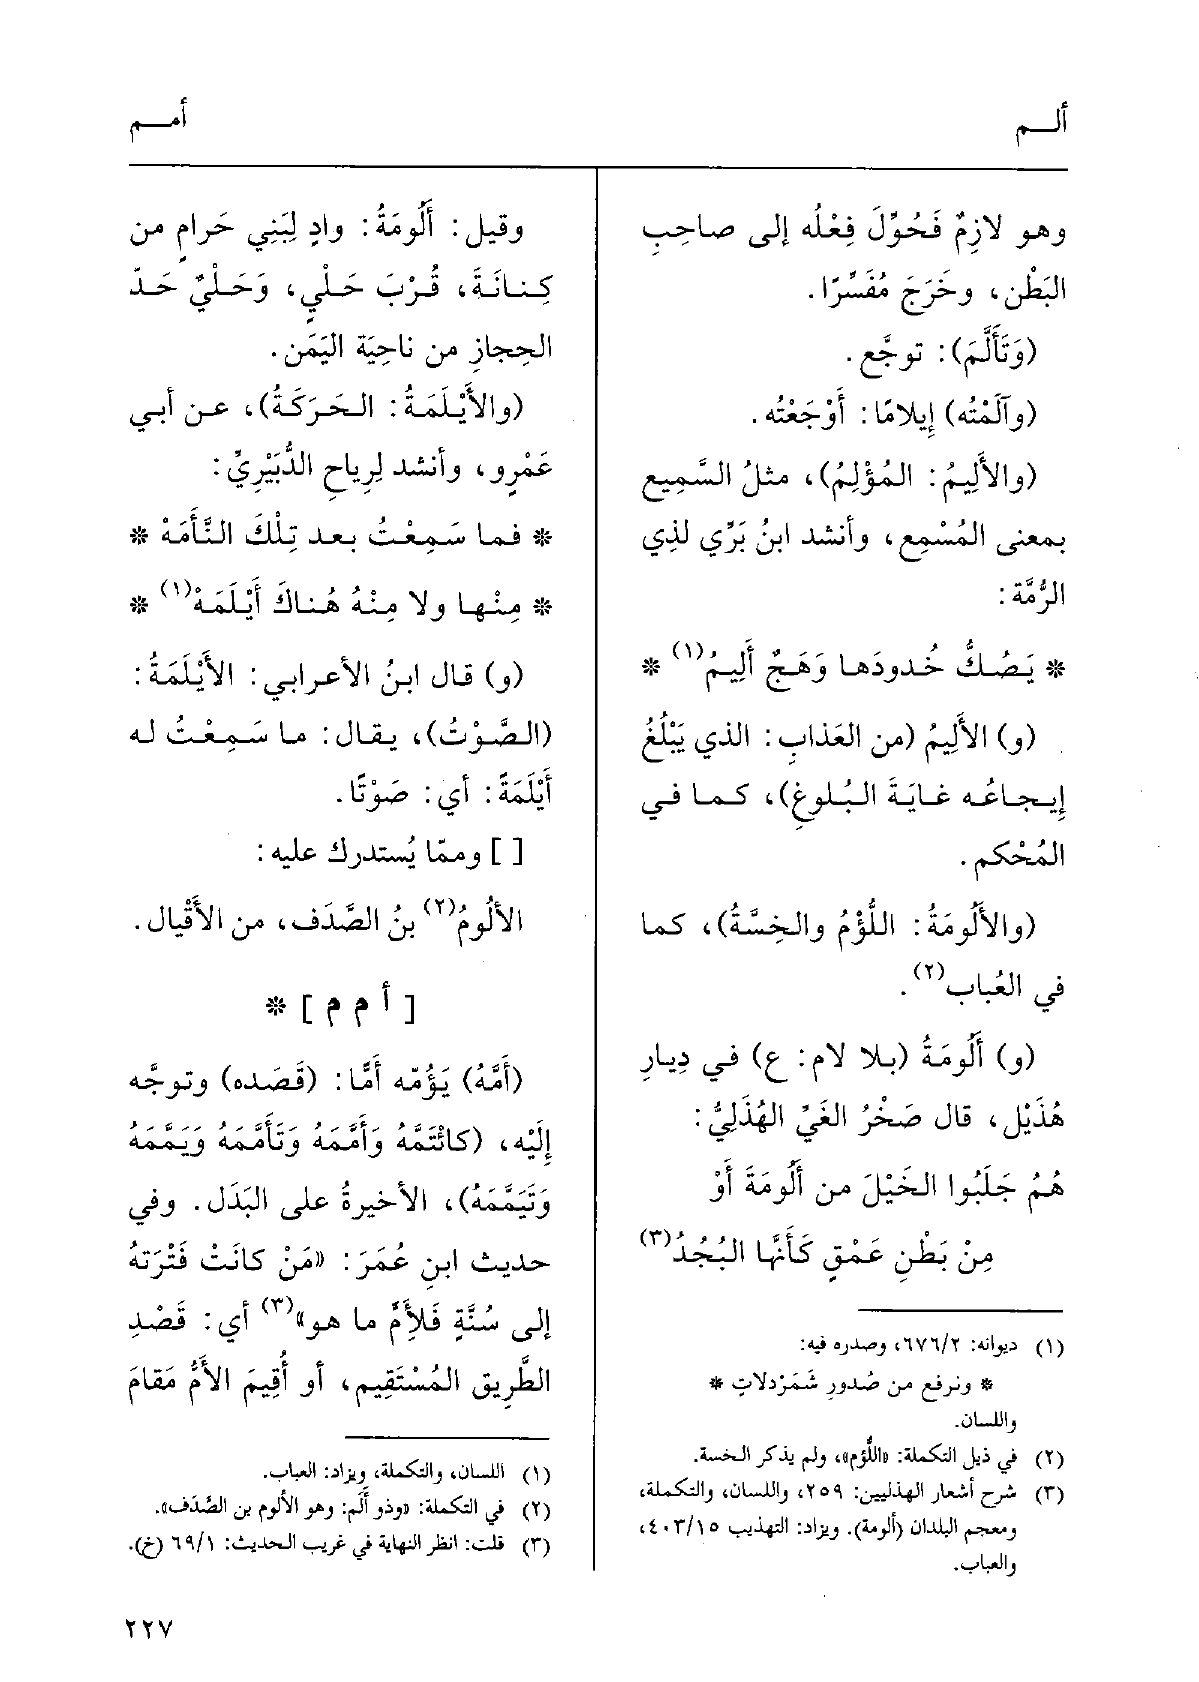 ألـــم
أمـــم
وهو لازِمٌ فَحُوِّلَ فِعْلُه إلى صاحِبِ
البَطْن، وخَرَجَ مُفَسِّرًا.
(وَتَأَلَّمَ): توجَّع.
(وآلَمْتُه) إيلامًا: أَوْجَعْتُه.
(والأَلِيمُ: المُؤْلِمُ)، مثلُ السَّمِيع
بمعنى المُسْمِع، وأنشد ابنُ بَرِّي لذِي
الرُّمَّة:
* يَصُكُّ خُدودَها وَهَجٌ أَلِيمُ(١) *
(و) الأَلِيمُ (من العَذابِ: الذي يَبْلُغُ
إيجاعُه غايَةَ البُلوغِ)، كما في
المُحْكم.
(والأَلُومَةُ: اللُّؤْمُ والخِسَّةُ)، كما
في العُباب(٢).
(و) أَلُومَةُ (بلا لام: ع) في دِيارِ
هُذَيْل، قال صَخْرُ الغَيِّ الهُذَلِيُّ:
هُمُ جَلَبُوا الخَيْلَ من أَلُومَةَ أَوْ
مِنْ بَطْنِ عَمْقٍ كَأَنَّها البُجُدُ(٣)
(١) ديوانه: ٦٧٦/٢، وصدره فيه:
* ونرفع من صُدورِ شَمَرْدلاتٍ *
واللسان.
(٢) في ذيل التكملة: «اللُّؤم»، ولم يذكر الخسة.
(٣) شرح أشعار الهذليين: ٢٥٩، واللسان، والتكملة،
ومعجم البلدان (ألومة). ويزاد: التهذيب ٤٠٣/١٥،
والعباب.
وقيل: أَلُومَةُ: وادٍ لِبَنِي حَرامٍ من
كِنانَةَ، قُرْبَ حَلْيٍ، وَحَلْيٌ حَدّ
الحِجازِ من ناحِيَة اليَمَن.
(والأَيْلَمَةُ: الحَرَكَةُ)، عن أبي
عَمْرٍو، وأنشد لِرِياحِ الدُّبَيْرِيِّ:
* فما سَمِعْتُ بعد تِلْكَ النَّأَمَهْ *
* مِنْها ولا مِنْهُ هُناكَ أَيْلَمَهْ(١) *
(و) قال ابنُ الأعرابي: الأَيْلَمَةُ:
(الصَّوْتُ)، يقال: ما سَمِعْتُ له
أَيْلَمَةً: أي: صَوْتًا.
[ ] وممّا يُستدرك عليه:
الأَلُومُ(٢) بنُ الصَّدَف، من الأَقْيال.
[ أ م م ] *
(أَمَّهُ) يَؤُمّه أَمًّا: (قَصَده) وتوجَّه
إِلَيْه، (كائْتَمَّهُ وَأَمَّمَهُ وَتَأَمَّمَهُ وَيَمَّمَهُ
وَتَيَمَّمَهُ)، الأخيرةُ على البَدَل. وفي
حديث ابنِ عُمَرَ: «مَنْ كانَتْ فَتْرَتهُ
إلى سُنَّةٍ فَلِأَمٍّ ما هو»(٣) أي: قَصْدِ
الطَّرِيق المُسْتَقِيم، أو أُقِيمَ الأَمُّ مَقامَ
(١) اللسان، والتكملة، ويزاد: العباب.
(٢) في التكملة: «وذو أَلَم: وهو الألوم بن الصَّدَف».
(٣) قلت: انظر النهاية في غريب الحديث: ٦٩/١ (خ).
٢٢٧